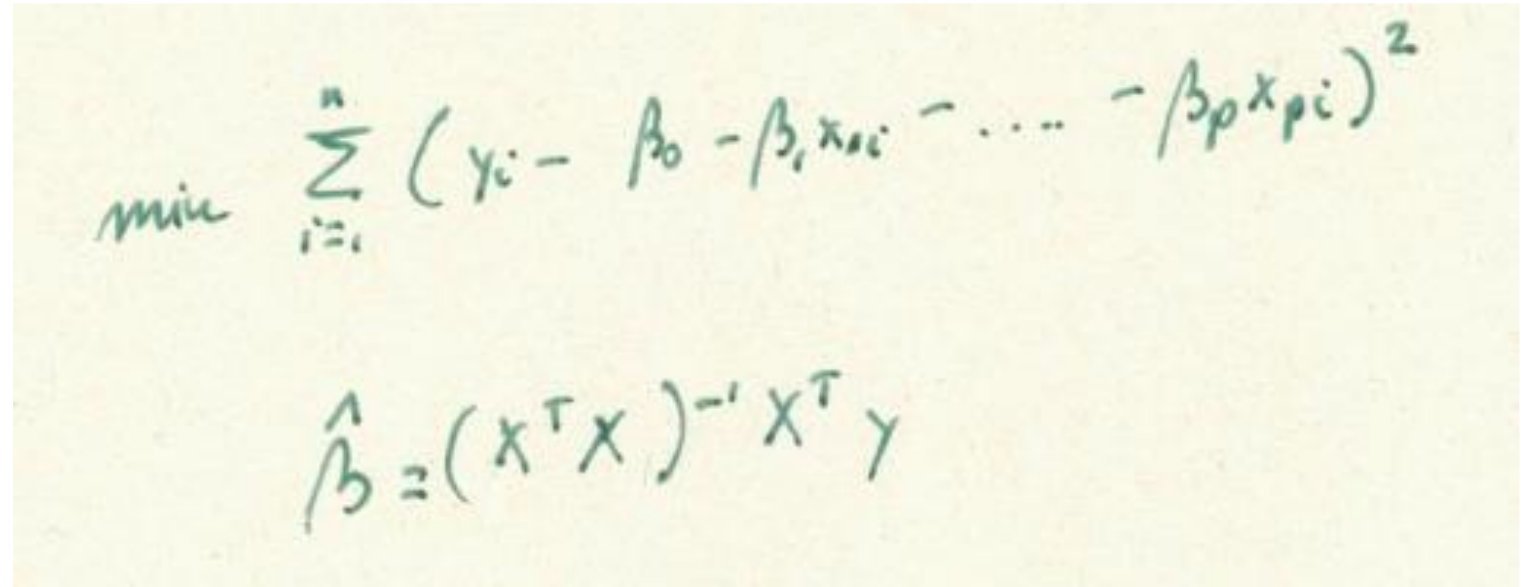 min ∑ᵢ₌₁ⁿ (yᵢ - β₀ - β₁x₁ᵢ - .... - βₚxₚᵢ)²
β̂ = (XᵀX)⁻¹Xᵀy